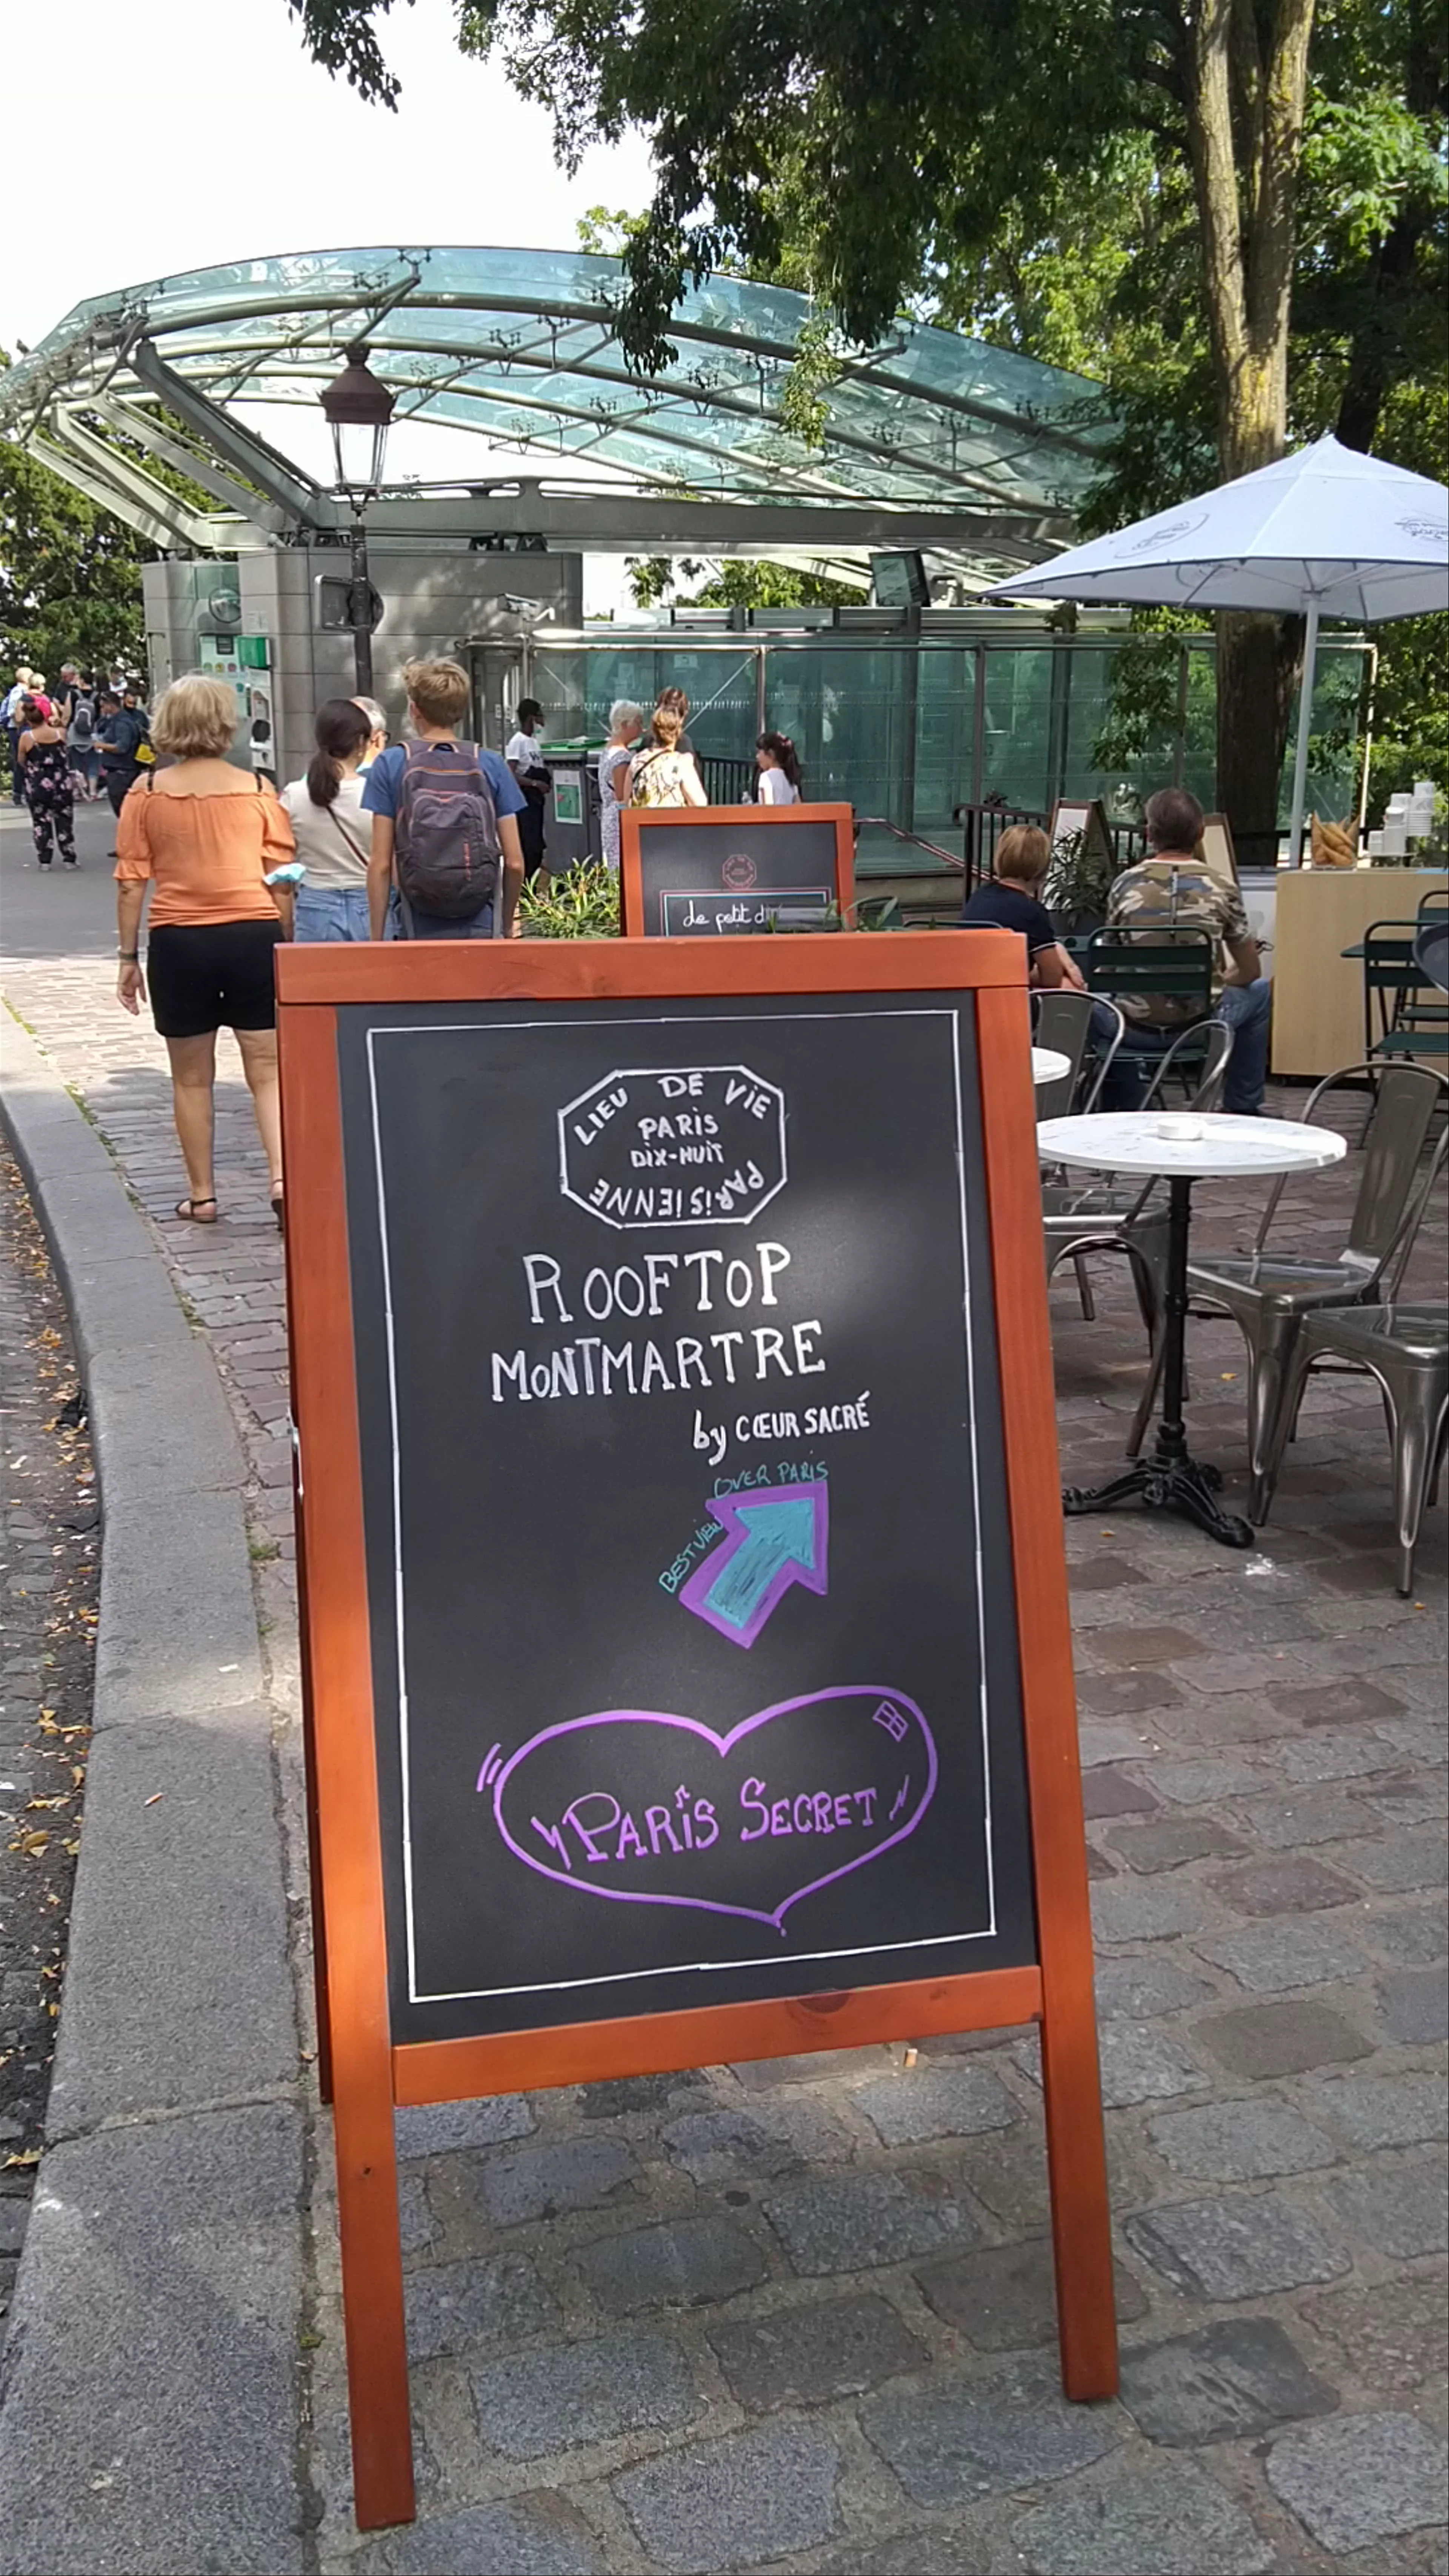 Le petit d
LIEU DE VIE
PARIS
DIX-HUIT
PARISIENNE
ROOFTOP
MONTMARTRE
by CŒUR SACRÉ
BEST VIEW OVER PARIS
PARIS SECRET